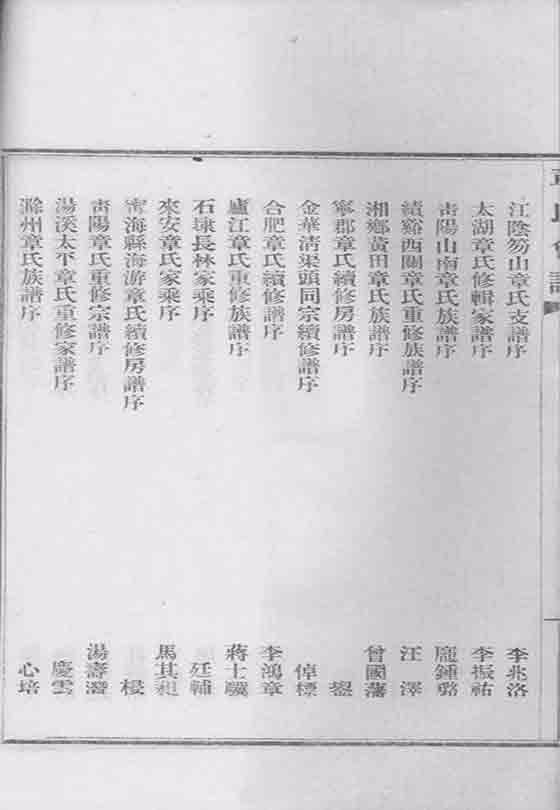 江陰笏山章氏支譜序 李兆洛
太湖章氏修輯家譜序 李振祜
青陽山南章氏族譜序 龐鍾璐
績谿西關章氏重修族譜序 汪澤
湘鄉黃田章氏族譜序 曾國藩
寧郡章氏續修房譜序 鋆
金華清渠頭同宗續修譜序 倬標
合肥章氏續修譜序 李鴻章
廬江章氏重修族譜序 蔣士驥
石埭長林家乘序 廷輔
來安章氏家乘序 馬其昶
寧海縣海游章氏續修房譜序 梫
青陽章氏重修宗譜序 湯壽潛
湯溪太平章氏重修家譜序 慶雲
滁州章氏族譜序 心培